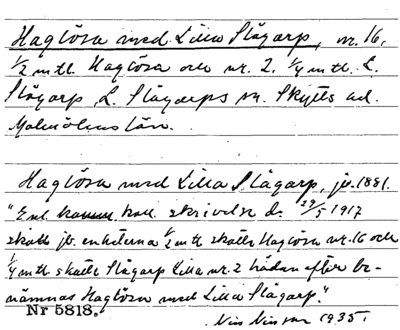 Haglösa med Lilla Slågarp, nr. 16,
1/2 mtl. Haglösa och nr. 2. 1/4 mtl. L.
Slågarp, L. Slågarps sn. Skytts hd.
Malmöhus län.
Haglösa med Lilla Slågarp, jb. 1881.
"Enl. kam. koll. skrivelse d. 29/5 1917
skall jb. enheterna 1/2 mtl skatte Haglösa nr. 16 och
1/4 mtl skatte Slågarp Lilla nr. 2 hädan efter be-
nämnas Haglösa med Lilla Slågarp."
Nr 5818.
1935.